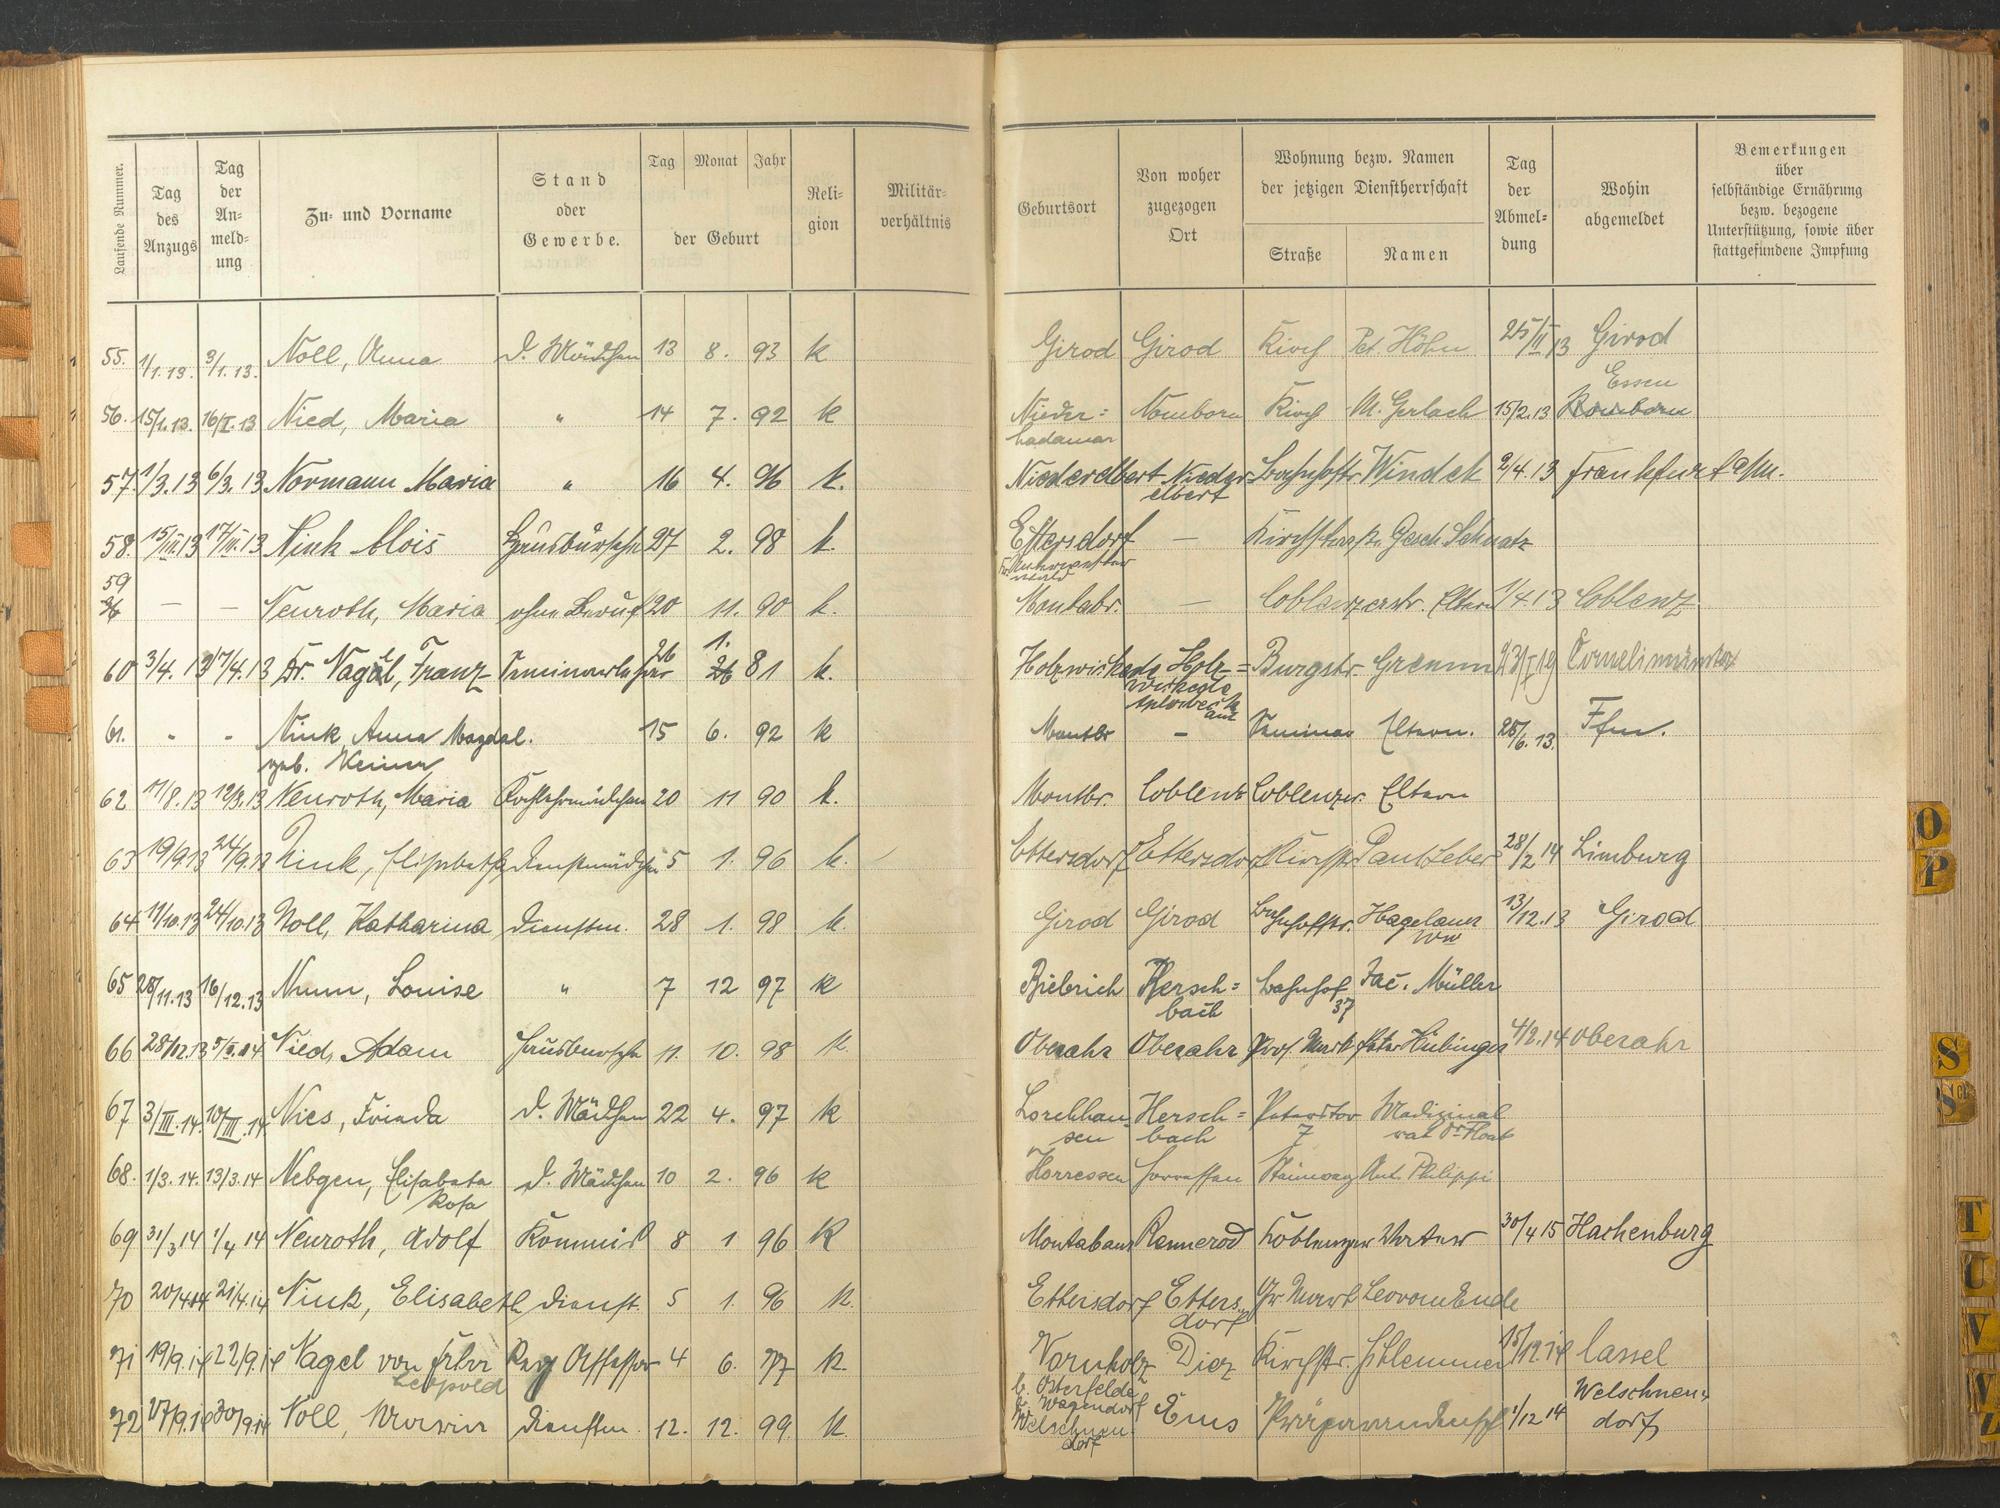 Laufende Nummer.
Tag des Anzugs
Tag der An=meld=ung
Zu= und Vorname
Stand oder Gewerbe.
Tag Monat Jahr
der Geburt
Reli=gion
Militär=verhältnis
Geburtsort
Von woher zugezogen Ort
Wohnung bezw. Namen der jetzigen Dienstherrschaft
Straße Namen
Tag der Abmel=dung
Wohin abgemeldet
Bemerkungen über selbständige Ernährung bezw. bezogene Unterstützung, sowie über stattgefundene Impfung
55. 1/1.13. 3/1.13. Noll, Anna d. Mädchen 13 8. 93 k Girod Girod Kirch Pet. Höhn 25/II 13 Girod
56. 15/1.13. 16/I.13 Nied, Maria " 14 7. 92 k Nieder=hadamar Nomborn Kirch M. Gerlach 15/2.13 Nomborn Essen
57. 1/3.13 6/3.13 Normann Maria " 16 4. 96 k. Niederelbert Niederelbert Bahnhofstr Windek 2/4.13 Frankfurt a/M.
58. 15/III.13 17/III.13 Nink Alois Hausbursche 27 2. 98 k. Ettersdorf Kr. Unterwesterwald — Kirchstraße Gesch. Schnatz
59 — — Neuroth, Maria ohne Beruf 20 11. 90 k. Montabr. — Coblenzerstr. Eltern 1/4.13 Coblenz
60 3/4.13 17/4.13 Dr. Nagel, Franz Seminarlehrer 26 1. 81 k. Holzwickede Holz=wickede Burgstr. Gremm 23/I 19 Cornelimünster
61. " " Nink Anna Magdal. 15 6. 92 k Montbr — Seminar Eltern. 28/6.13. Ffm.
geb.
62 11/8.13 12/8.13 Neuroth, Maria Kochlehrmädchen 20 11 90 k. Montbr. Coblenz Coblenzer. Eltern
63 19/9.13 24/9.13 Nink, Elisabeth Dienstmädchen 5 1. 96 k. Ettersdorf Ettersdorf Kirchstr Paul Leber 28/2 14 Limburg
64 11/10.13 24/10.13 Noll, Katharina Dienstm. 28 1. 98 k. Girod Girod Bahnhofstr. Hagelauer Ww 13/12.13 Girod
65 28/11.13 16/12.13 Numm, Louise " 7 12 97 k Biebrich Hersch=bach Bahnhof 37 Jac. Müller
66 28/12.13 Nied, Adam Hausbursche 11. 10. 98 k. Oberahr Oberahr Gr. Markt Peter Hübinger 4/2.14 Oberahr
67 3/III.14. 10/III.14 Nies, Frieda d. Mädchen 22 4. 97 k Lorchhausen Hersch=bach Peterstor 7 Medizinalrat Dr.
68. 1/3.14. 13/3.14 Nebgen, Elisabeta Rosa d. Mädchen 10 2. 96 k Horressen Horressen Steinweg Ant. Philippi
69 31/3 14 1/4 14 Neuroth, Adolf Kommis 8 1 96 k Montabaur Rennerod Koblenzer Vater 30/4 15 Hachenburg
70 20/4.14 21/4.14 Nink, Elisabeth Dienst. 5 1. 96 k. Ettersdorf Etters=dorf Gr Markt
71 19/9.14 22/9.14 Nagel von Frhr Leopold Reg Assessor 4 6. 77 k. Vornholz b. Ostenfelde Diez Kirchstr. Schlemmer 15/12.14 Cassel
72 27/9.14 30/9.14 Noll, Maria Dienstm. 12. 12. 99. k. Welschneudorf Ems 1/12 14 Welschneudorf
O
P
S
Sch
T
U
V
W
Z